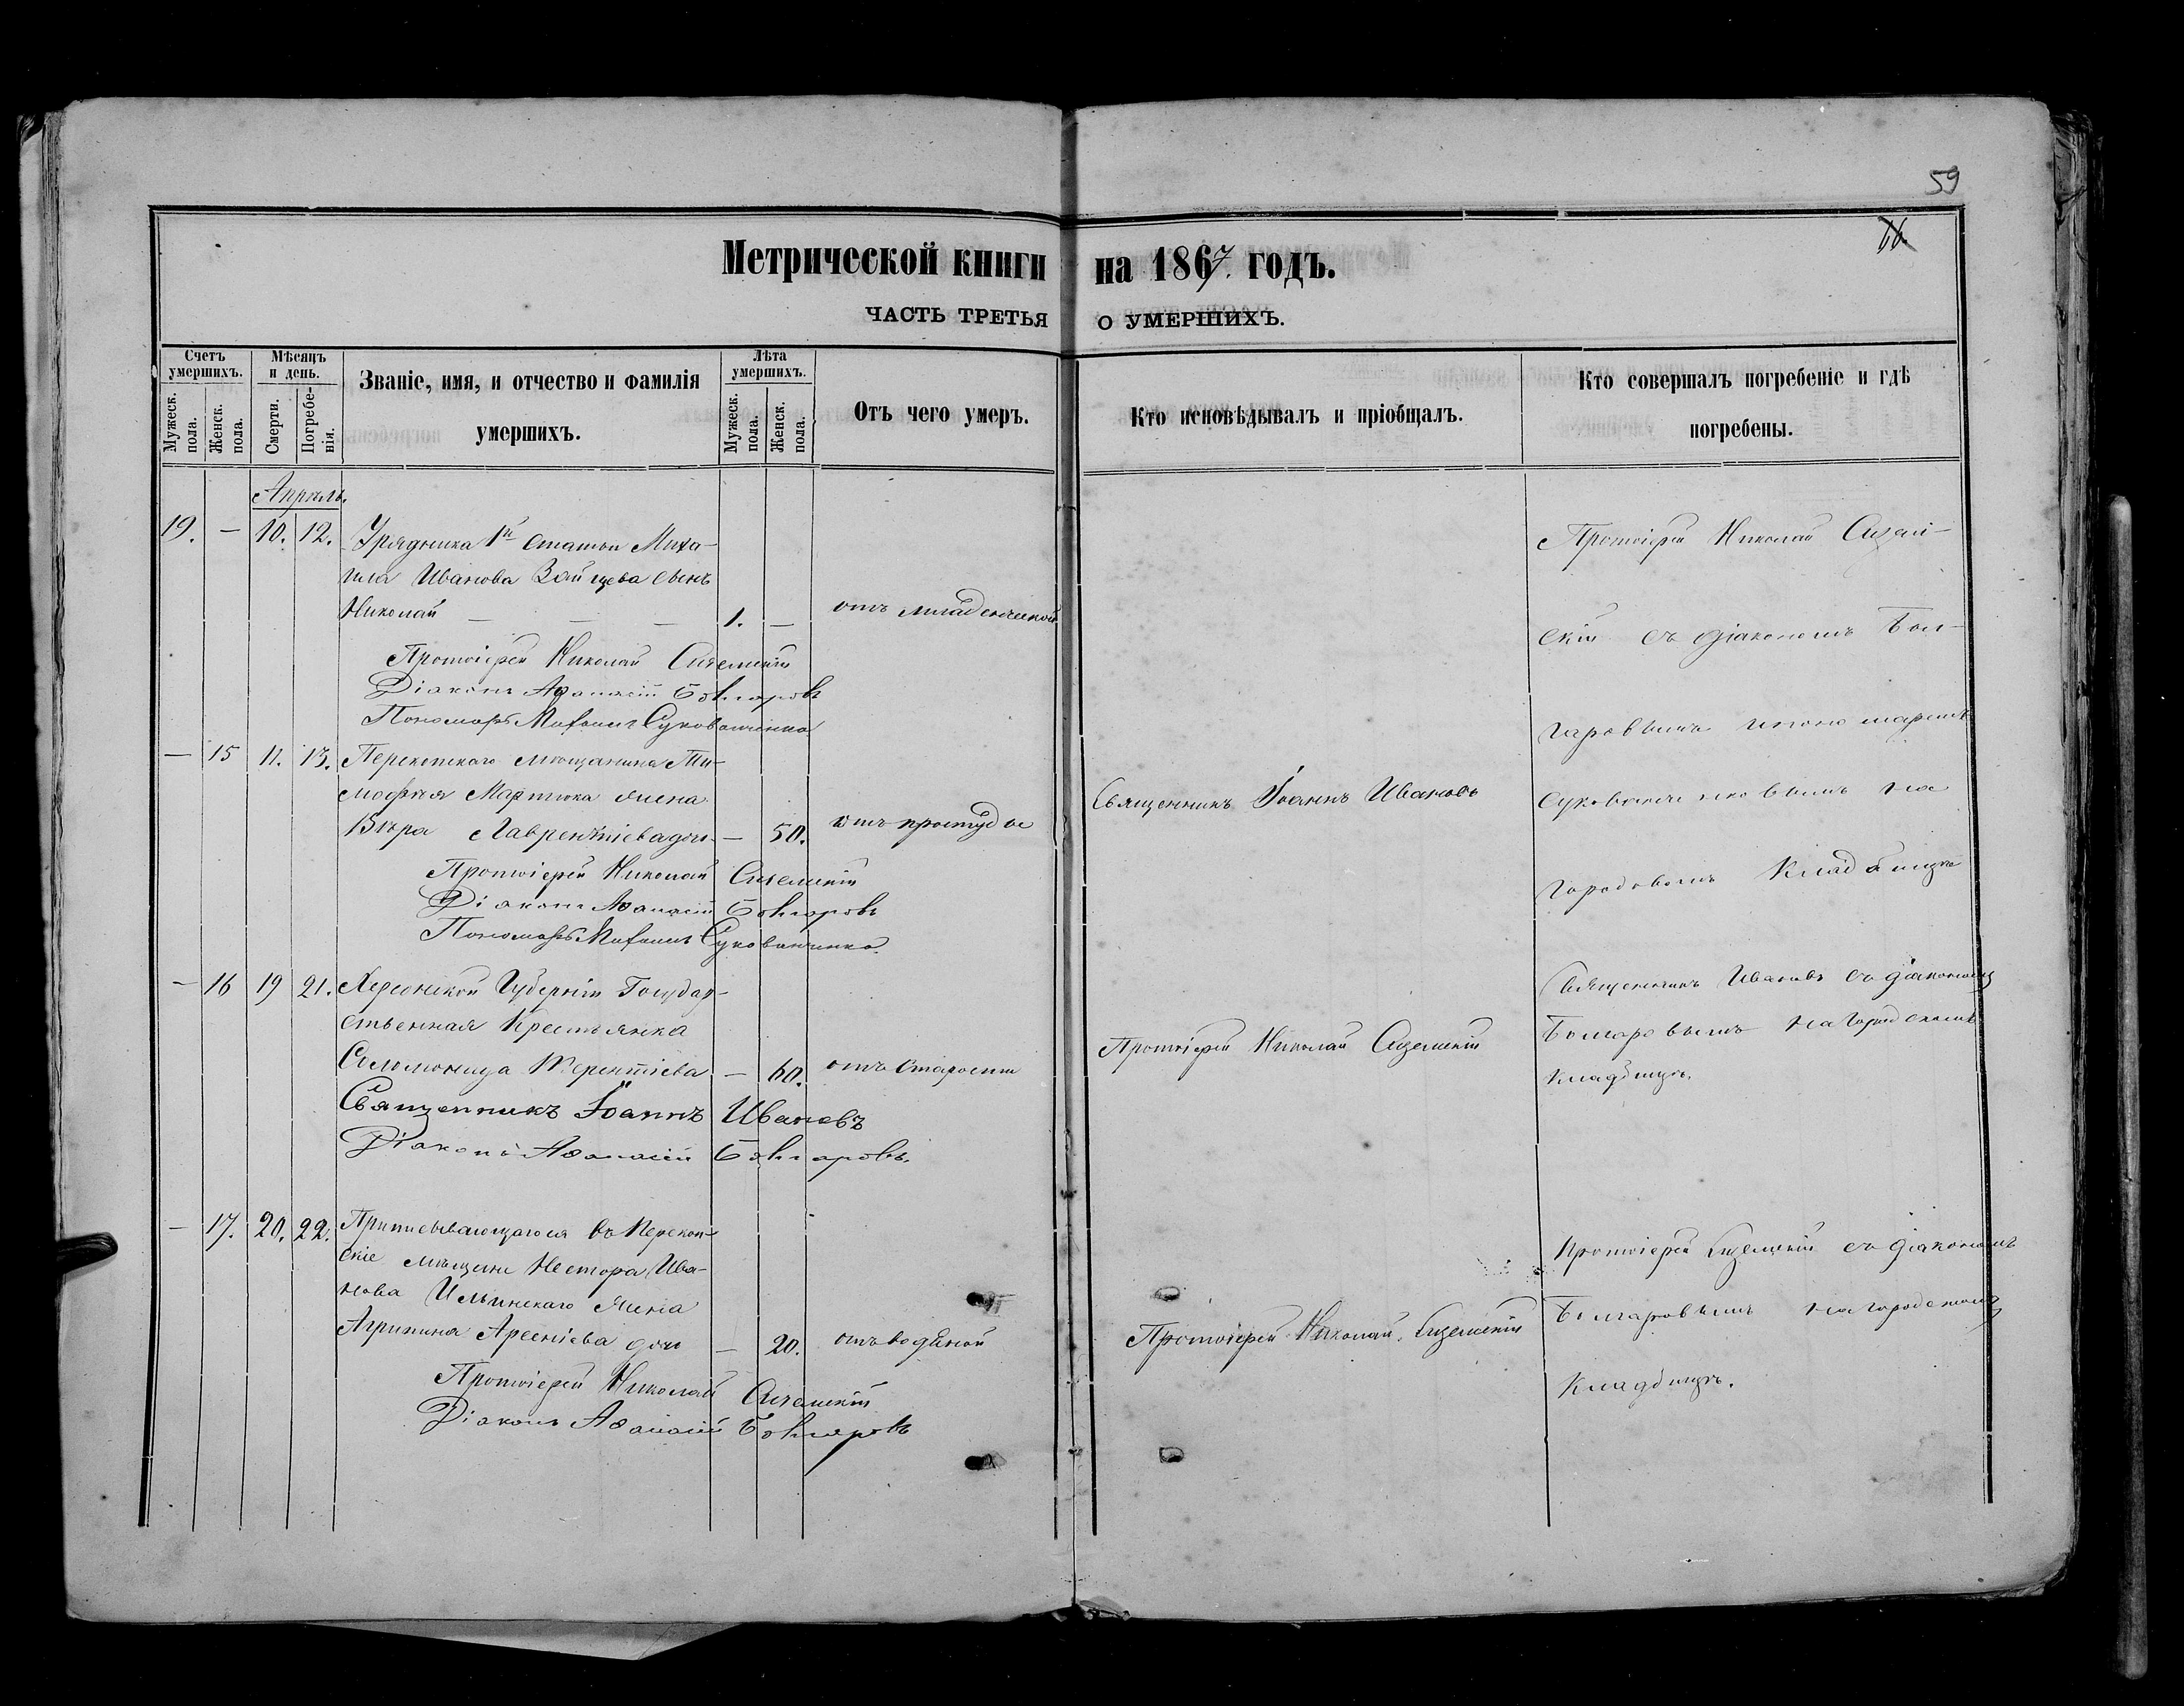 59
16.
Метрической книги на 1867. годъ.
ЧАСТЬ ТРЕТЬЯ О УМЕРШИХЪ.
Счетъ умершихъ.
Мужеск. пола.
Женск. пола.
Мѣсяцъ и день.
Смерти.
Погребе-нія.
Званіе, имя, и отчество и фамилія
умершихъ.
Лѣта умершихъ.
Мужеск. пола.
Женск. пола.
Отъ чего умеръ.
Кто исповѣдывалъ и пріобщалъ.
Кто совершалъ погребеніе и гдѣ
погребены.
Апрѣль.
19. — 10. 12. Урядника 1й статьи Миха-
ила Иванова Зайцева сынъ
Николай — — — 1. — отъ младенческой
Протоіерей Николай
Діаконъ Аѳанасій Болгаровъ
Пономарь Михаилъ
Протоіерей Николай
скій съ діакономъ Бол-
гаровымъ и пономаремъ
на
городовомъ кладбищѣ
— 15 11. 13. Перекопскаго мѣщанина Ти-
мофѣя Мартюка жена
Вѣра Лаврентіева дочь — 50. отъ простуды
Протоіерей Николай
Діаконъ Аѳанасій Болгаровъ
Пономарь Михаилъ
Священникъ Іоаннъ Ивановъ
— 16 19 21. Херсонской Губерніи Государ-
ственная Крестьянка
Терентіева — 60. отъ старости
Священникъ Іоаннъ Ивановъ
Діаконъ Аѳанасій Болгаровъ.
Протоіерей Николай
Священникъ Ивановъ съ діакономъ
Болгаровымъ на городскомъ
кладбищѣ.
— 17. 20. 22. Приписывающагося въ Перекоп-
скіе мѣщане Нестора Ива-
нова Ильинскаго жена
Агрипина Арсеніева дочь — 20. отъ водяной
Протоіерей Николай
Діаконъ Аѳанасій Болгаровъ
Протоіерей Николай
Протоіерей съ діакономъ
Болгаровымъ на городскомъ
кладбищѣ.